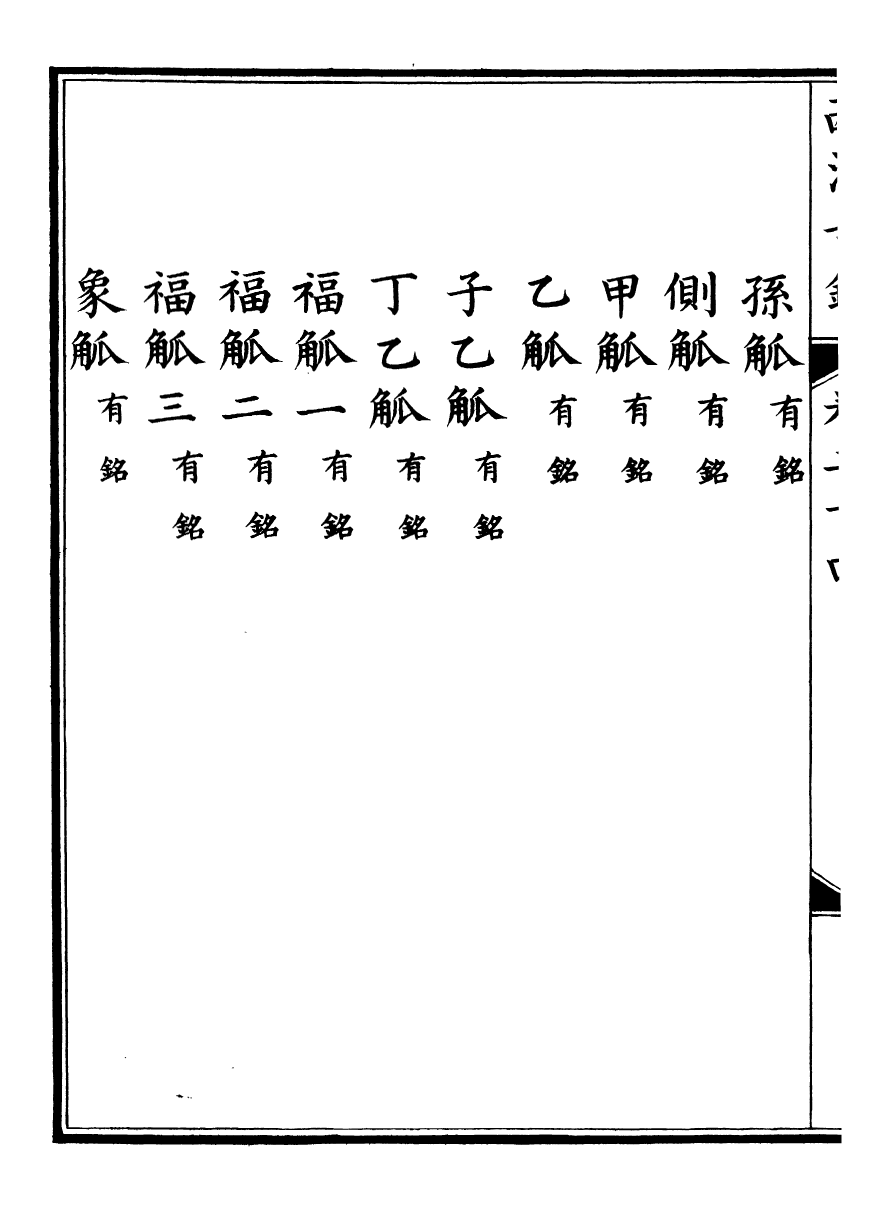 孫觚有銘
側觚有銘
甲觚有銘
乙觚有銘
子乙觚有銘
丁乙觚有銘
福觚一有銘
福觚二有銘
福觚三有銘
象觚有銘